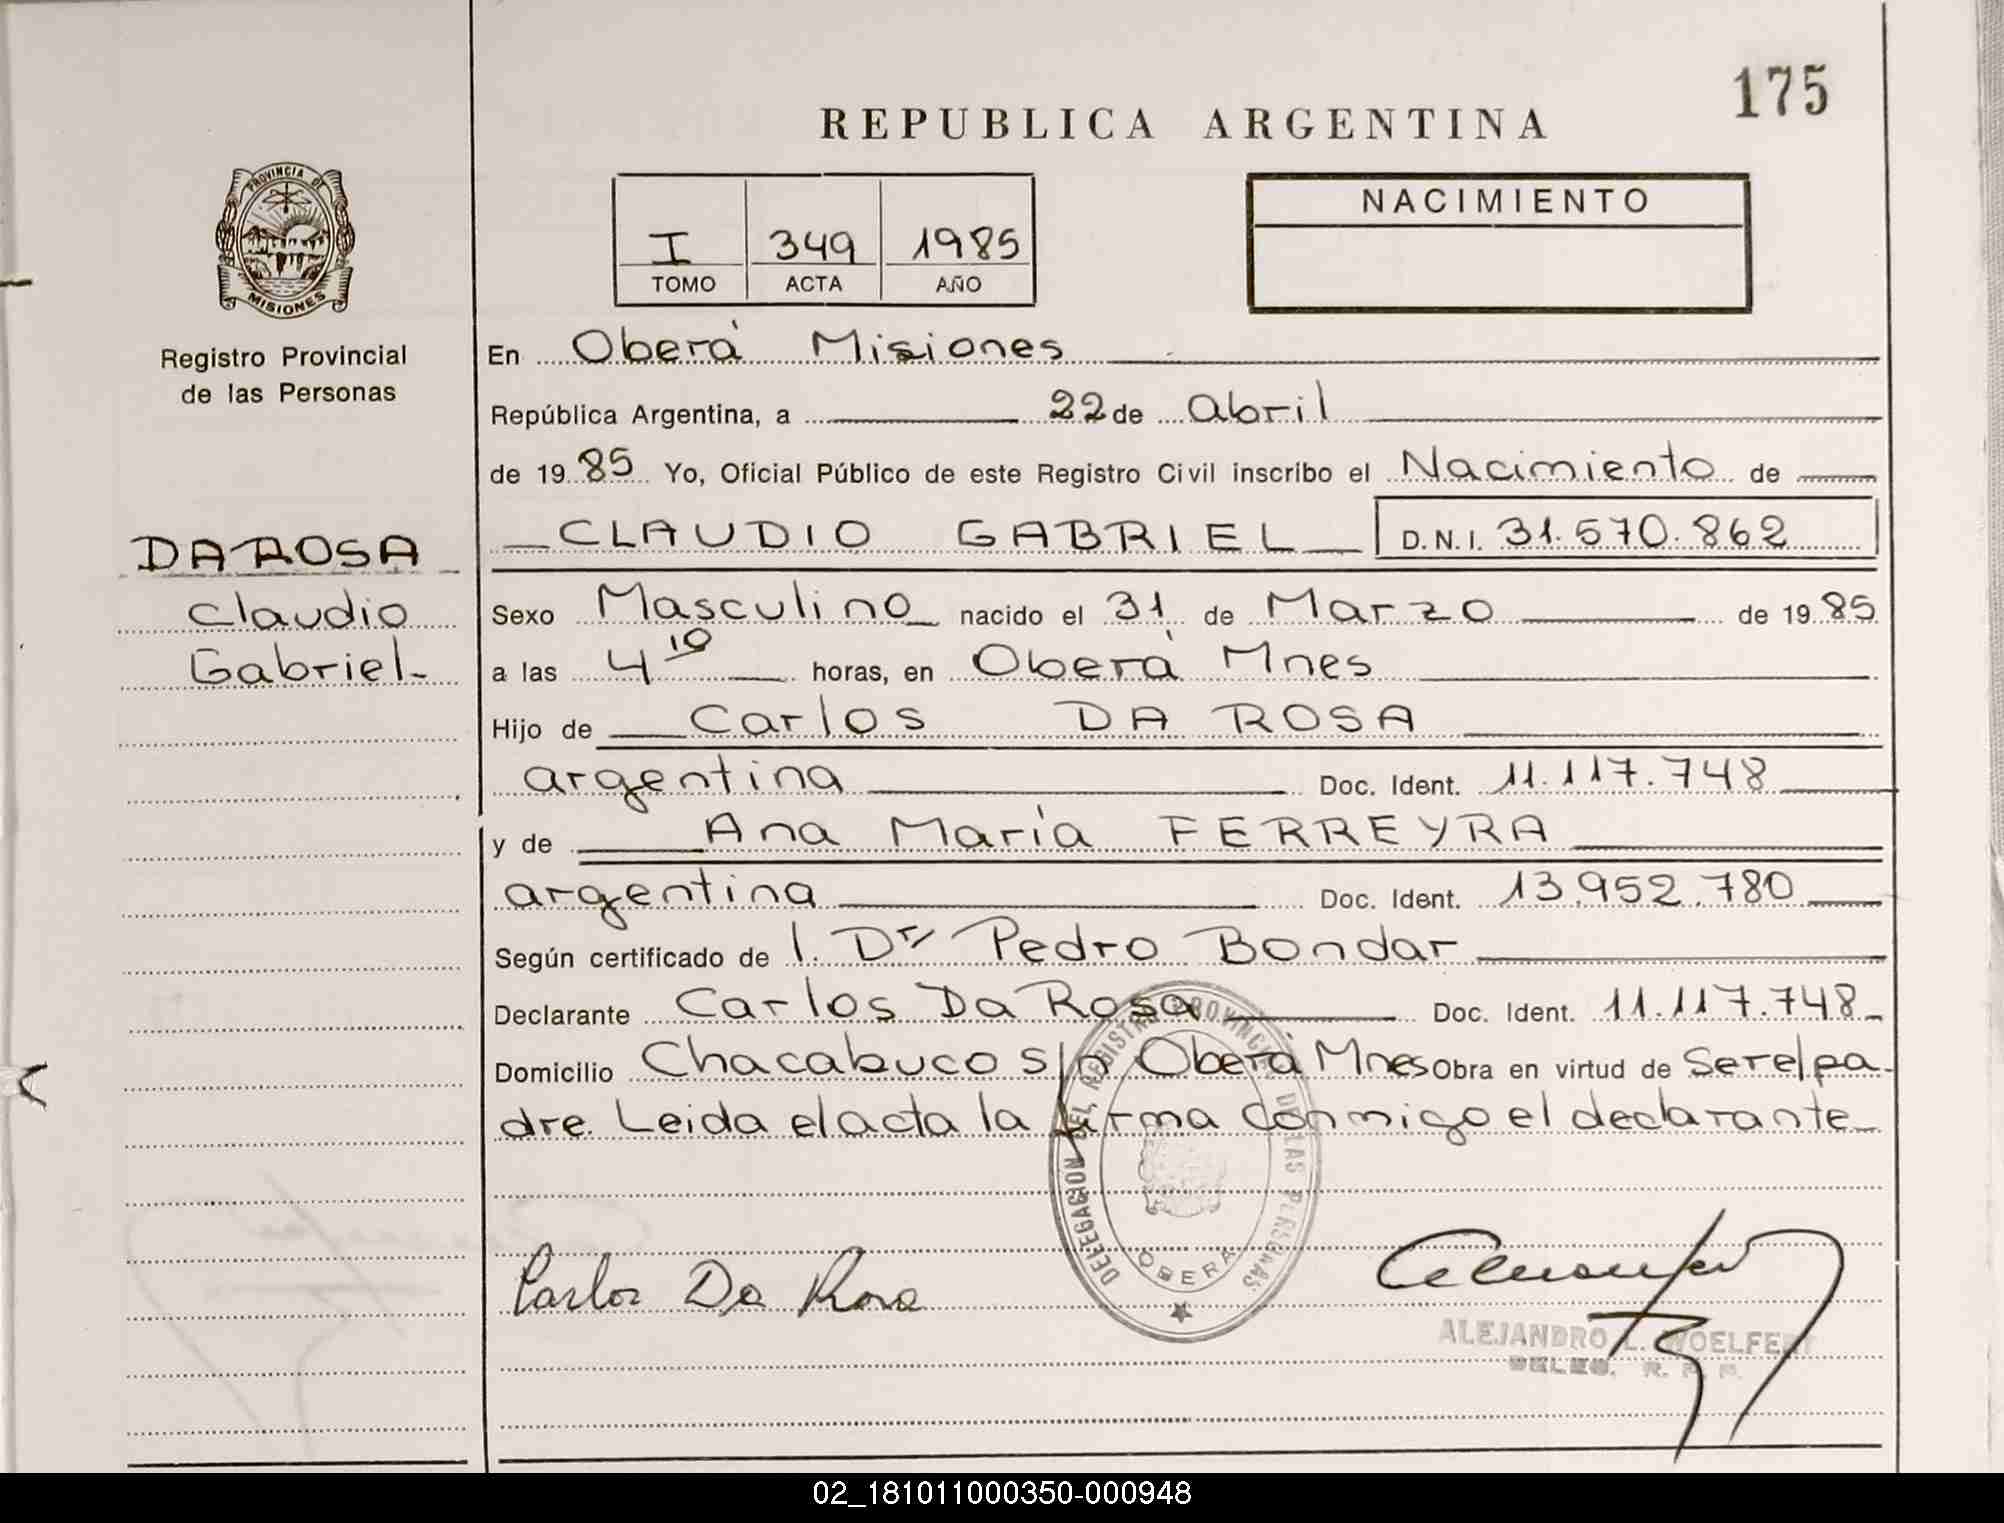 175
REPUBLICA ARGENTINA
PROVINCIA DE
MISIONES
Registro Provincial
de las Personas
DA ROSA
Claudio
Gabriel
I 349 1985
TOMO ACTA AÑO
NACIMIENTO
En Oberá Misiones
República Argentina, a 22 de abril
de 19 85 Yo, Oficial Público de este Registro Civil inscribo el Nacimiento de
CLAUDIO GABRIEL D.N.I. 31.570.862
Sexo Masculino nacido el 31 de Marzo de 19 85
a las 4 10 horas, en Oberá Mnes
Hijo de Carlos DA ROSA
argentina Doc. Ident. 11.117.748
y de Ana María FERREYRA
argentina Doc. Ident. 13.952.780
Según certificado de l. Dr Pedro Bondar
Declarante Carlos Da Rosa Doc. Ident. 11.117.748
Domicilio Chacabuco s/n Oberá Mnes Obra en virtud de Ser el pa-
dre. Leida el acta la firma conmigo el declarante
DELEGACION DEL REGISTRO PROVINCIAL DE LAS PERSONAS
OBERA
Carlos Da Rosa
ALEJANDRO L. WOELFERT
DELEG. R. P. P.
02_181011000350-000948